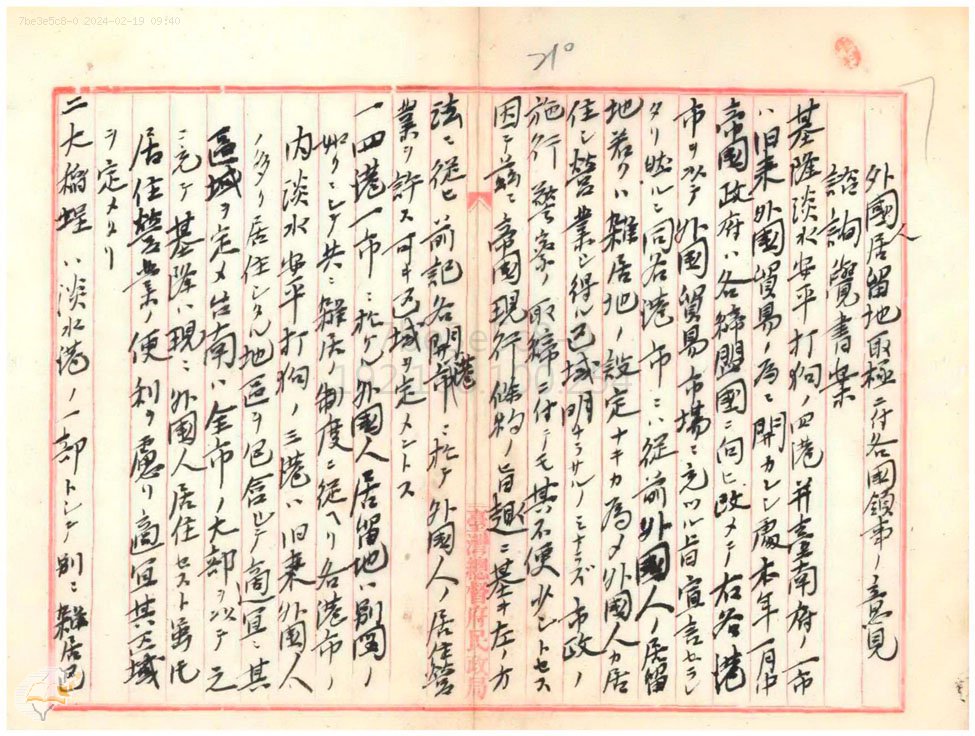 7be3e5c8-0 2024-02-19 09:40
外國人居留地取極ニ付各國領事ノ意見
諮詢覺書案
基隆淡水安平打狗ノ四港并臺南府ノ一市
ハ旧来外國貿易ノ為ニ開カレシ處本年一月中
帝國政府ハ各締盟國ニ向ヒ改メテ右各港
市ヲ以テ外國貿易市場ニ充ツル旨宣言セラレ
タリ然ルニ同各港市ニハ従前外國人ノ居留
地若クハ雜居地ノ設定ナキカ為メ外國人カ居
住シ營業シ得ル区域明ナラサルノミナラズ市政ノ
施行警察ノ取締ニ付テモ其不便少シトセス
因テ茲ニ帝國現行條約ノ旨趣ニ基キ左ノ方
法ニ従ヒ前記各開港市ニ於テ外國人ノ居住營
業ヲ許ス可キ区域ヲ定メントス
一四港一市ニ於ケル外國人居留地ハ別図ノ
如クニシテ共ニ雜居ノ制度ニ従ヘリ各港市ノ
内淡水安平打狗ノ三港ハ旧来外國人
ノ多ク居住シタル地區ヲ包含シテ適宜ニ其
區域ヲ定メ台南ハ全市ノ大部ヲ以テ之
ニ充テ基隆ハ現ニ外國人居住セスト雖モ
居住營業ノ便利ヲ慮リ適宜其区域
ヲ定メタリ
二大稻埕ハ淡水港ノ一部トシテ別ニ雜居区
臺灣總督府民政局